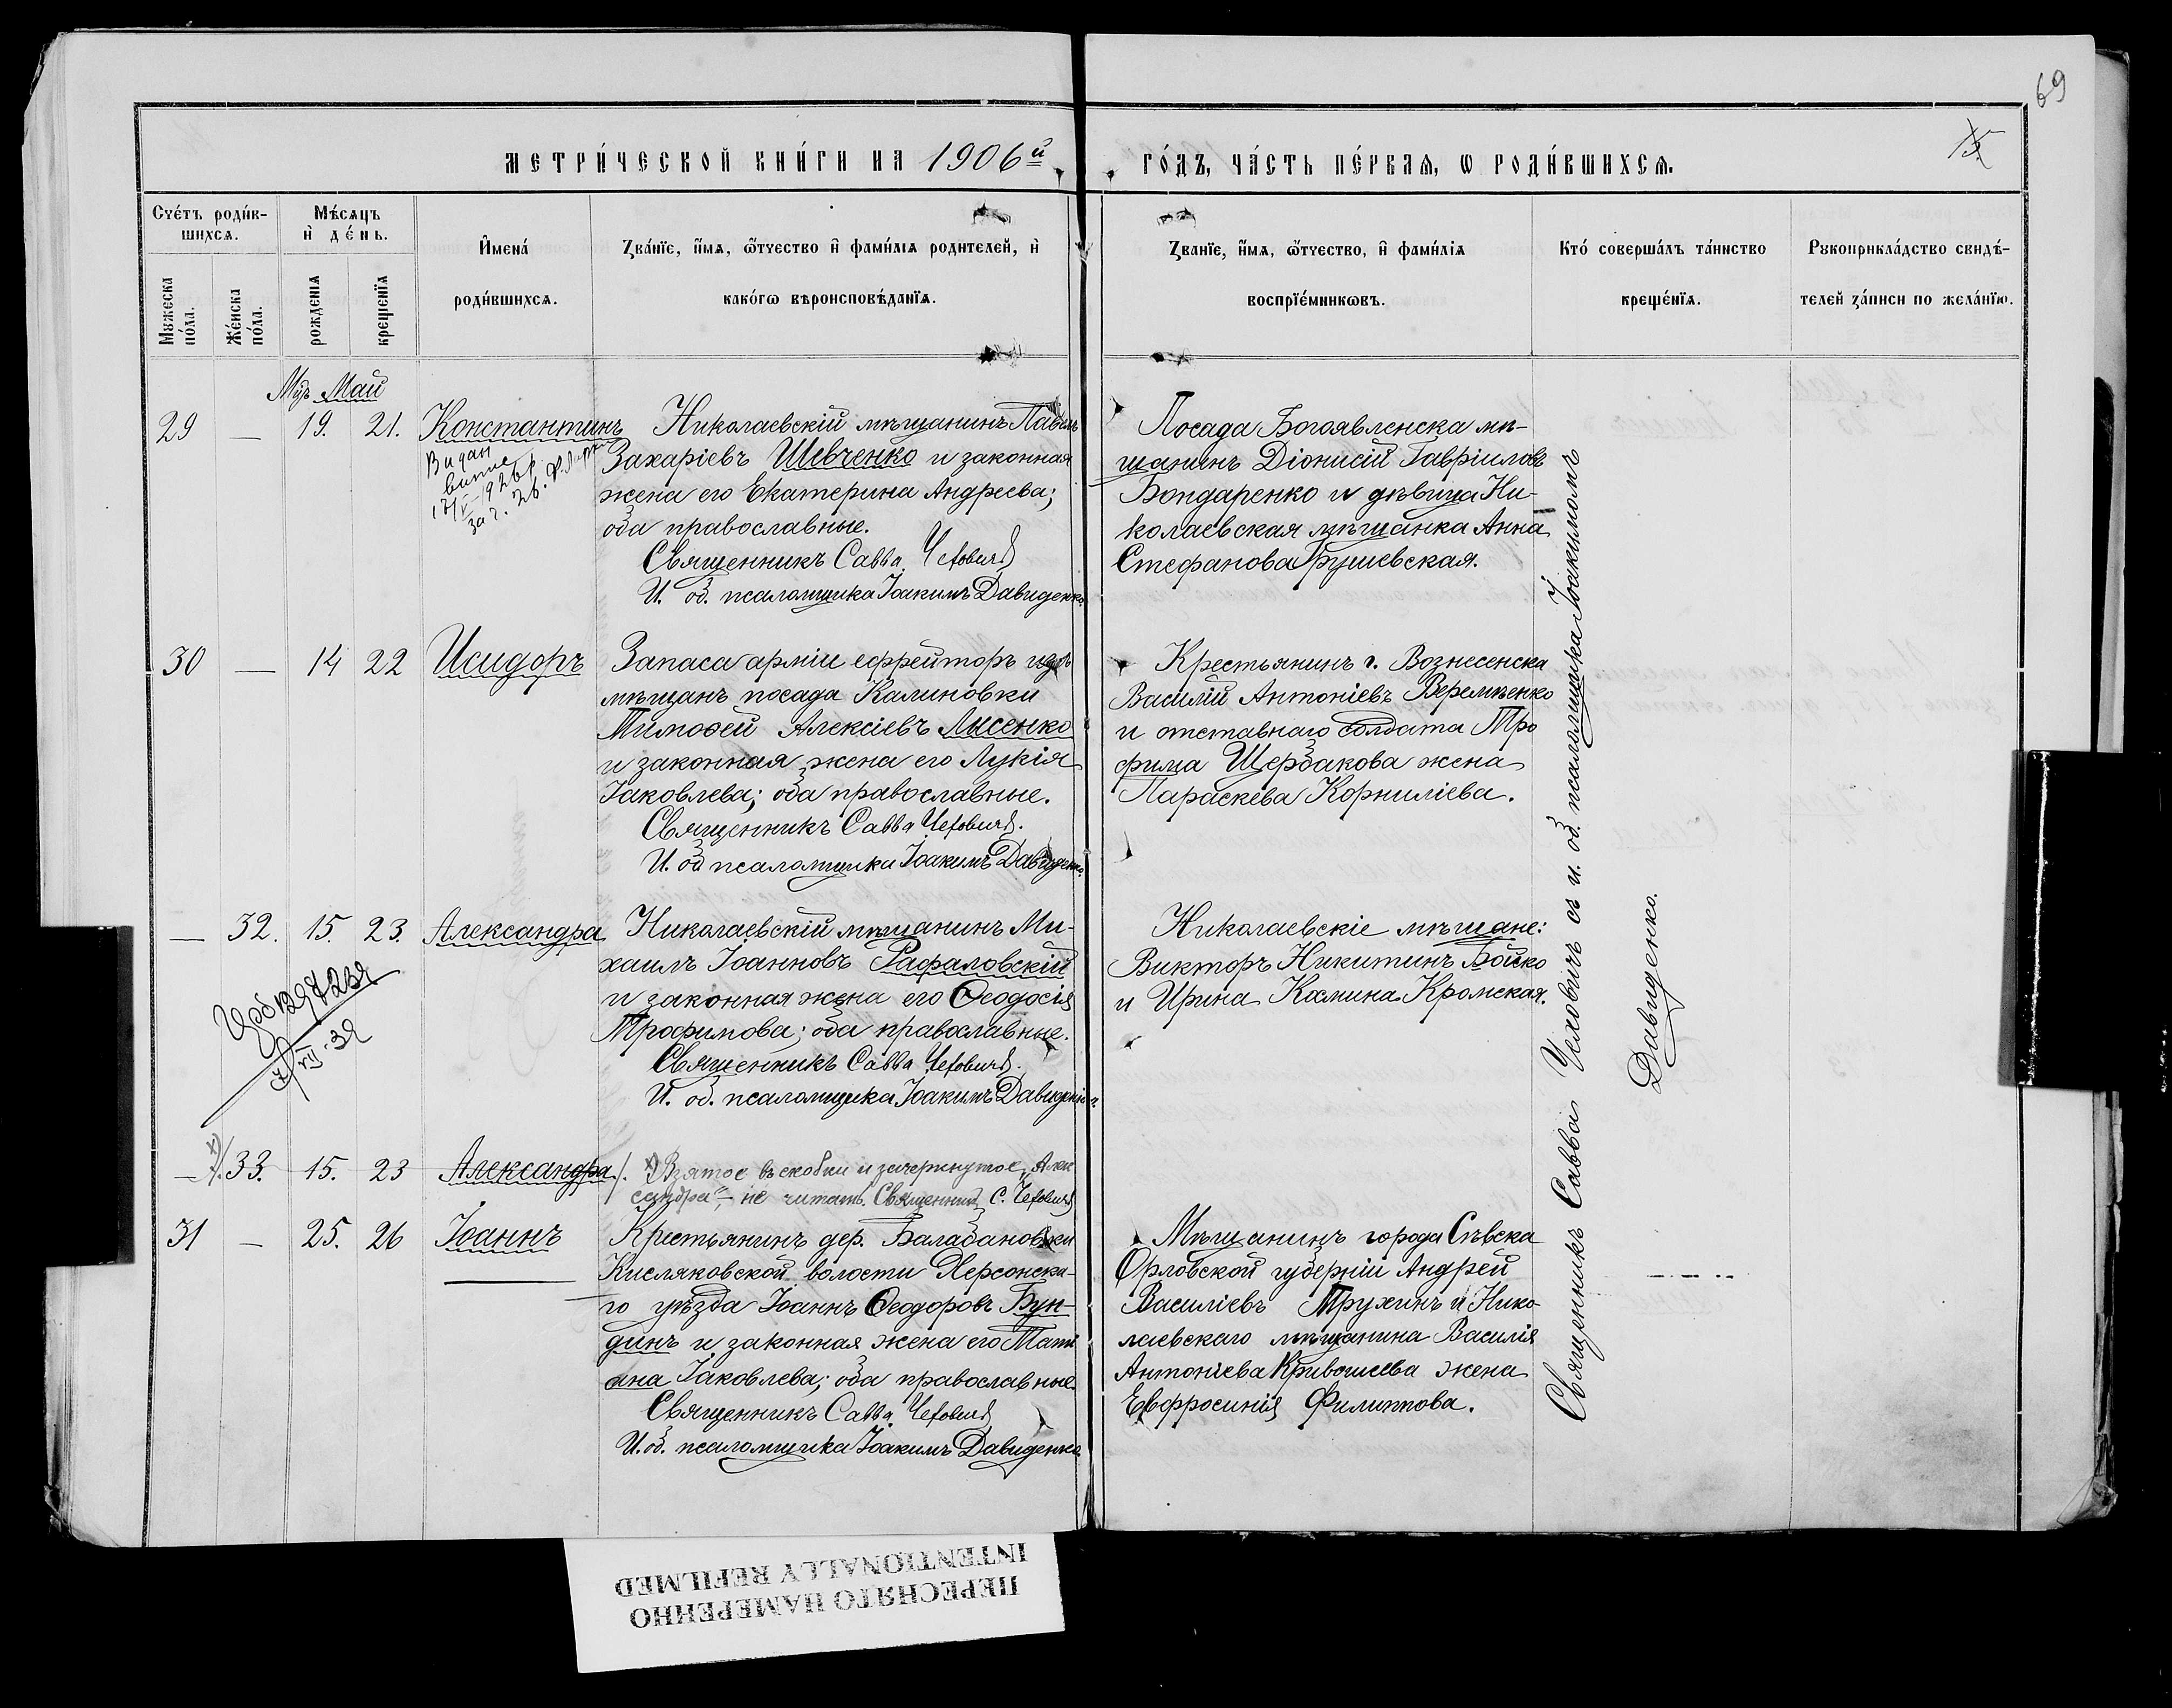 69
МЕТРИ́ЧЕСКОЙ КНИ́ГИ НА 1906й
ГО́ДЪ, ЧА́СТЬ ПЕ́РВАЯ, Ѡ РОДИ́ВШИХСЯ.
15
Сче́тъ роди́в-
шихся.
Мѣ́сяцъ
и де́нь.
Имена́
роди́вшихся.
Зва́нїе, и́мя, ѻ́тчество и фами́лїя родителей, и
како́гѡ вѣроисповѣ́данїя.
Зва́нїе, и́мя, ѻ́тчество, и фами́лїя
воспрїе́мникѡвъ.
Кто́ соверша́лъ та́инство
креще́нїя.
Рукоприкла́дство свидѣ́-
телей за́писи по жела́нїю.
Мужеска
по́ла.
Же́нска
по́ла.
рожденїя
крещенїя
Мцъ Май
29 — 19. 21. Константинъ
Видан
витяг
17/V 1926 р
за ч. 26.
Николаевскій мѣщанинъ Павелъ
Захаріевъ Шевченко и законная
жена его Екатерина Андреева;
оба православные.
Священникъ Савва Чехович
И. об. псаломщика Іоакимъ Давиденко.
Посада Богоявленска мѣ-
щанинъ Діонисій Гавріиловъ
Бондаренко и дѣвица Ни-
колаевская мѣщанка Анна
Стефанова Грушевская.
30 — 14 22 Исидоръ
Запаса арміи ефрейторъ изъ
мѣщанъ посада Калиновки
Тимоѳей Алексіевъ Лисенко
и законная жена его Лукія
Іаковлева; оба православные.
Священникъ Савва Чехович.
И. об псаломщика Іоакимъ Давиденко.
Крестьянинъ г. Вознесенска
Василій Антоніевъ Веремѣенко
и отставнаго солдата Тро
фима Щербакова жена
Параскева Корниліева.
— 32. 15. 23. Александра
Николаевскій мѣщанинъ Ми-
хаилъ Іоанновъ Рафаловскій
и законная жена его Ѳеодосія
Трофимова; оба православные.
Священникъ Савва Чехович.
И. об. псаломщика Іоакимъ Давиденко.
Николаевскіе мѣщане:
Викторъ Никитинъ Бойко
и Ирина Кромская.
— 33. 15. 23 Александра
х) Взятое въ скобки и зачеркнутое „Алек
сандра“ – не читать. Священник С. Чехович
31 — 25. 26 Іоаннъ
Крестьянинъ дер. Балабановки
Кисляковской волости Херсонска-
го уѣзда Іоаннъ Ѳеодоровъ Бун-
динъ и законная жена его Тати
ана Іаковлева; оба православные.
Священникъ Савва Чехович
И. об. псаломщика Іоакимъ Давиденко
Мѣщанинъ города Сѣвска
Орловской губерніи Андрей
Василіевъ Трухинъ и Нико-
лаевскаго мѣщанина Василія
Антоніева Кривошеева жена
Евфросинія Филиппова.
Священникъ Савва Чеховичъ съ и. об. псаломщика Іоакимомъ
Давиденко.
ПЕРЕСНЯТО НАМЕРЕННО
INTENTIONALLY REFILMED